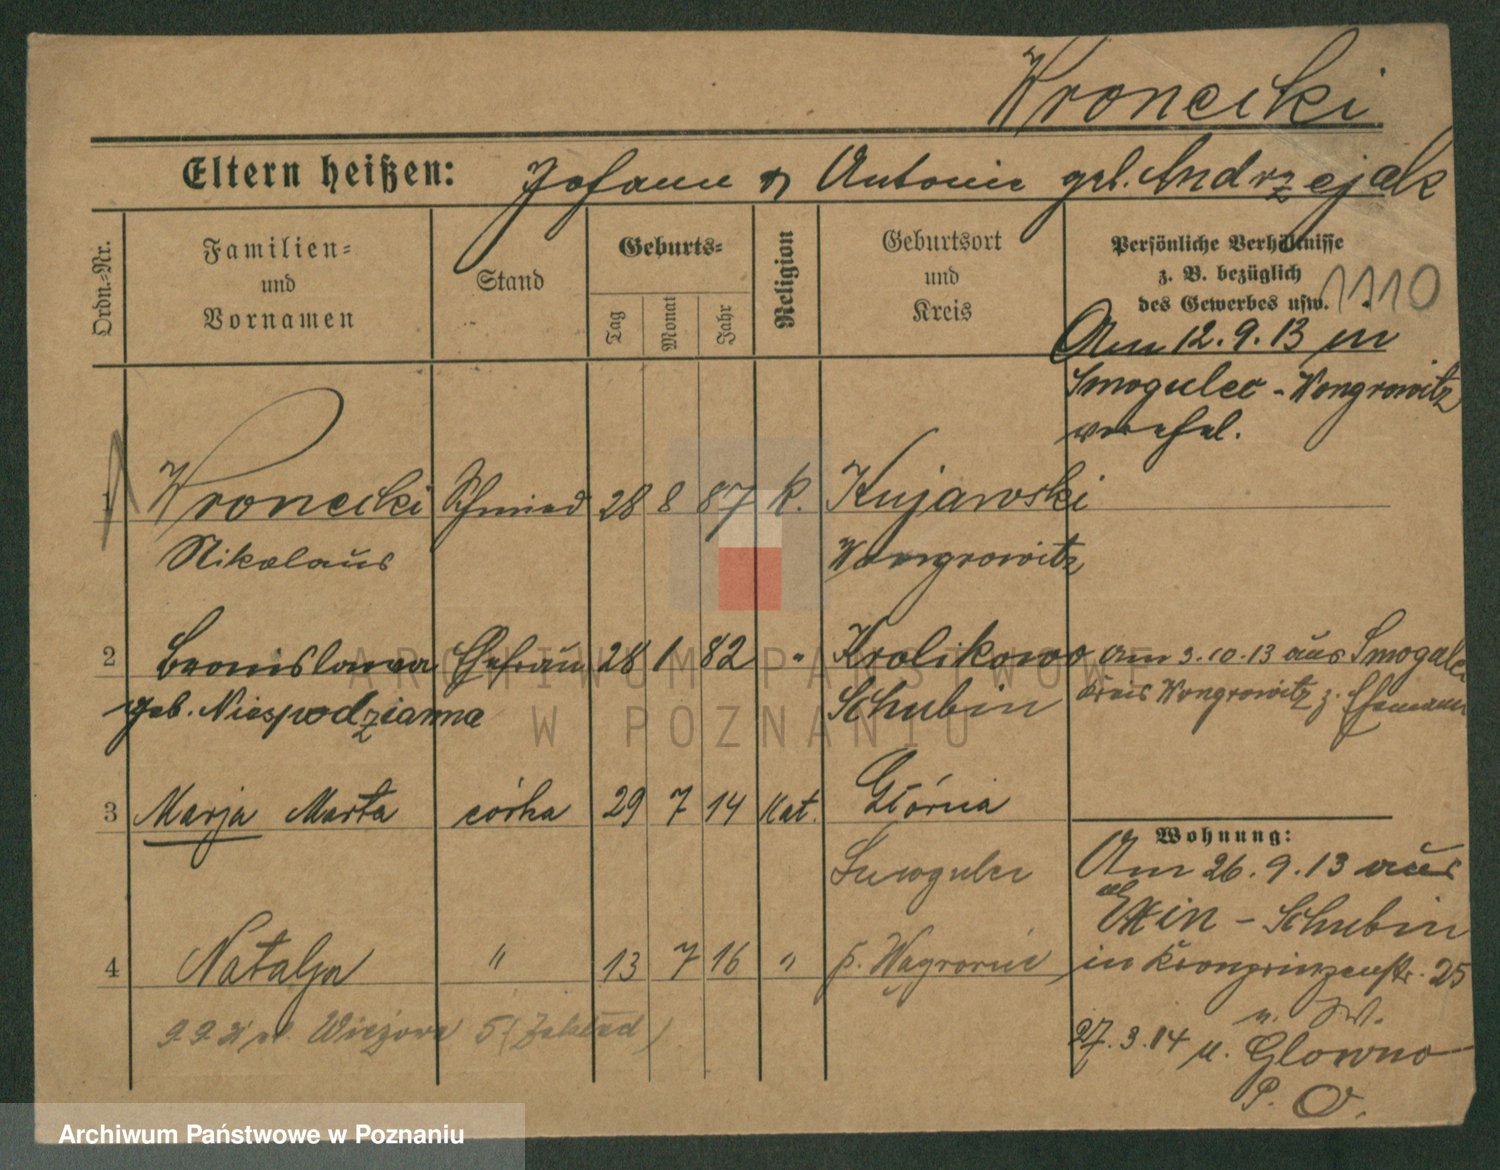 Wronecki
Eltern heißen: Johann u Antonie geb. Andrzejak
Ordn.-Nr.
Familien- und Vornamen
Stand
Geburts-
Tag
Monat
Jahr
Religion
Geburtsort und Kreis
Persönliche Verhältnisse
z. B. bezüglich
des Gewerbes usw.
1110
Am 12.9.13 in
Smogulec - Wongrowitz
verehel.
1 Wronecki Schmied 28 8 87 k. Kujawski
Nikolaus Wongrowitz
2 Bronislawa Ehefrau 28 1 82 " Krolikowo am 3.10.13 aus Smogulec
geb. Niespodziana Schubin Kreis Wongrowitz z. Ehemann
3 Marja Marta córka 29 7 14 kat. Głórnia
Smogulec
4 Natalja " 13 7 16 " p. Wągrowiec
Wohnung:
Am 26.9.13 aus
Exin - Schubin
in Kronprinzenstr. 25
n. W.
27.3.14 n. Glowno
P. O.
Wieżowa 5 (Zakład)
ARCHIWUM PAŃSTWOWE
W POZNANIU
Archiwum Państwowe w Poznaniu